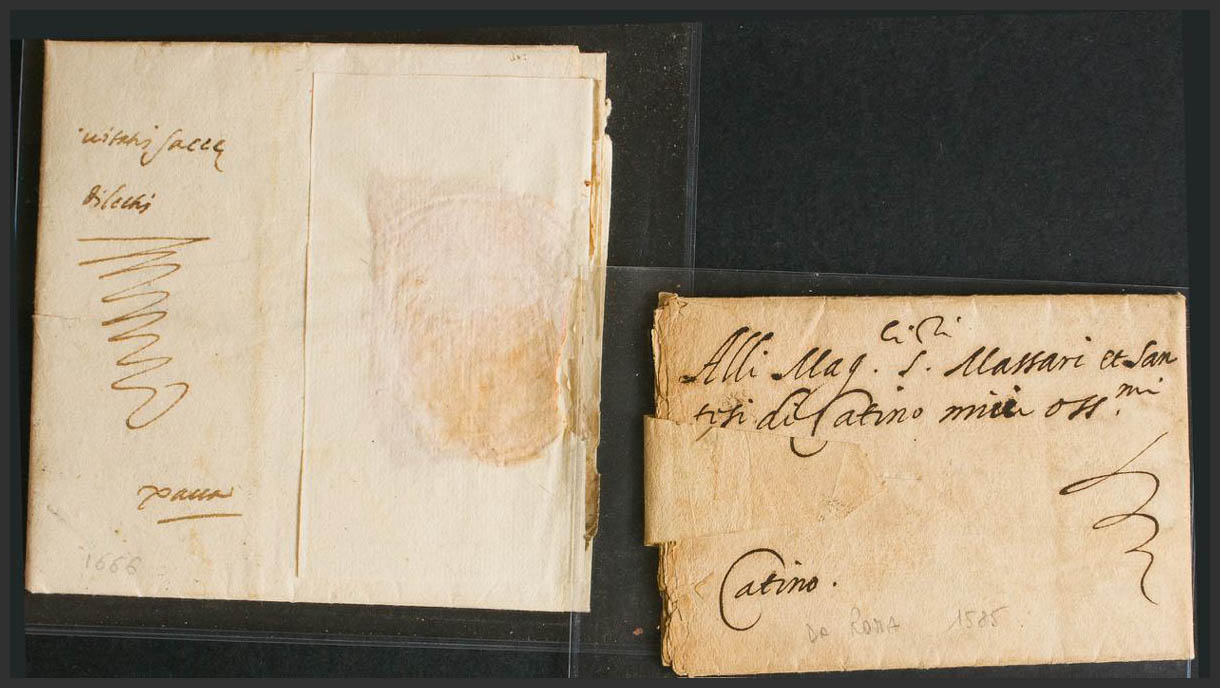 Dilechi
pacca
1666
ci ri
Alli Mag. S. Massari et San
tesi di Catino miei oss.mi
Catino.
Da Roma 1585